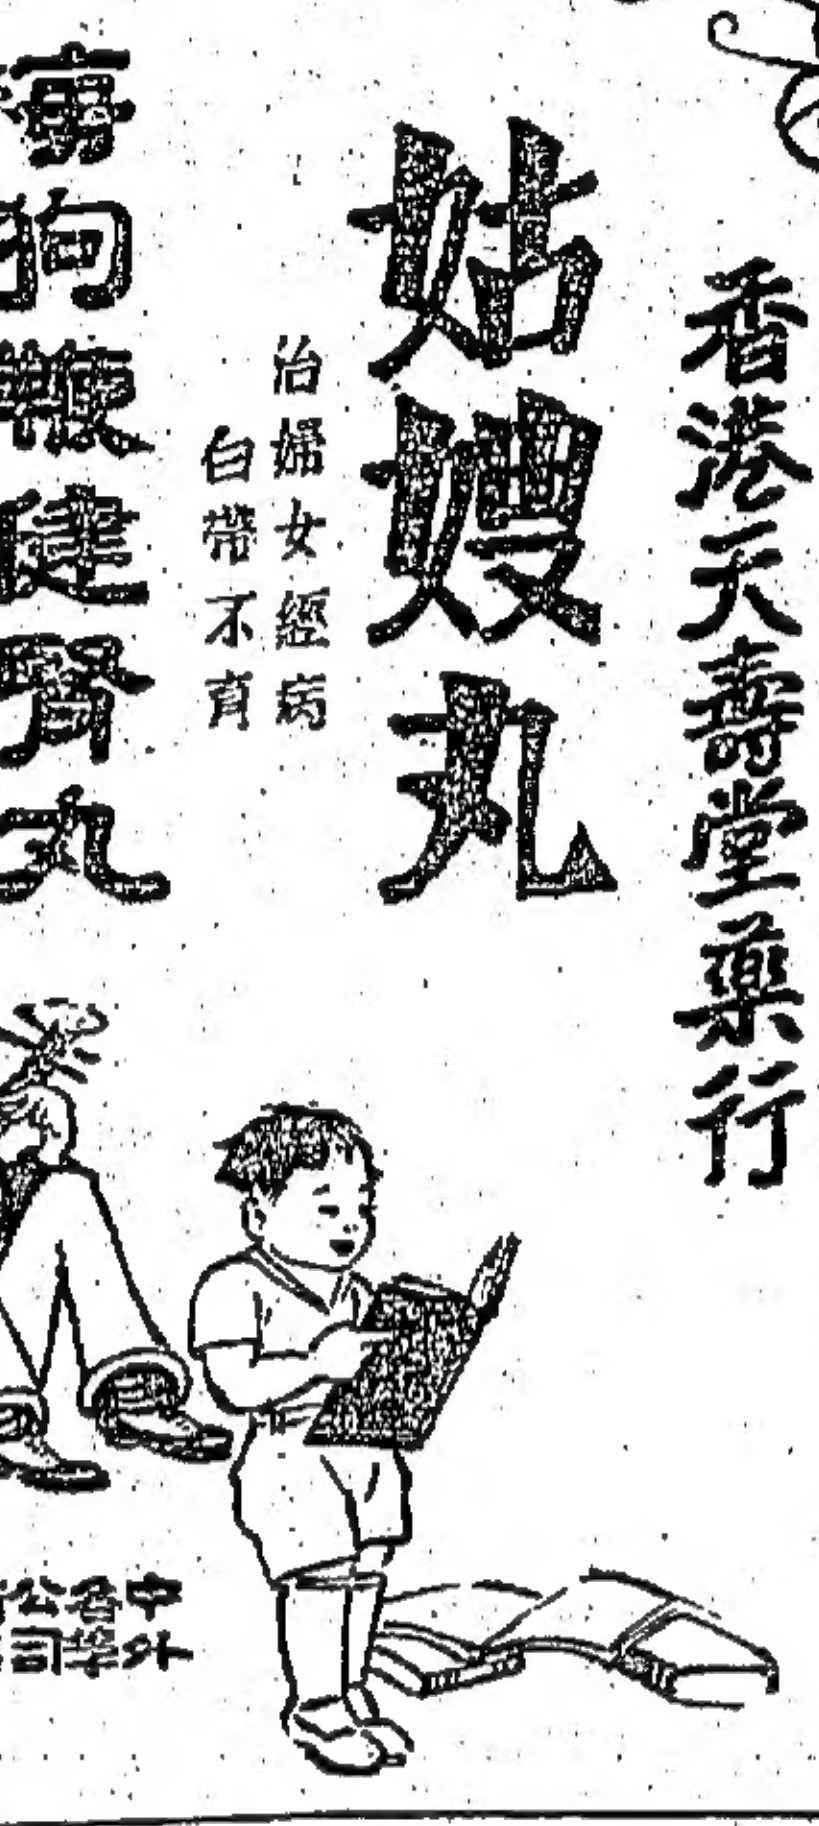 香港天壽堂藥行
姑嫂丸
治婦女經病
白帶不育
海狗鞭健腎丸
中外
各埠
公司